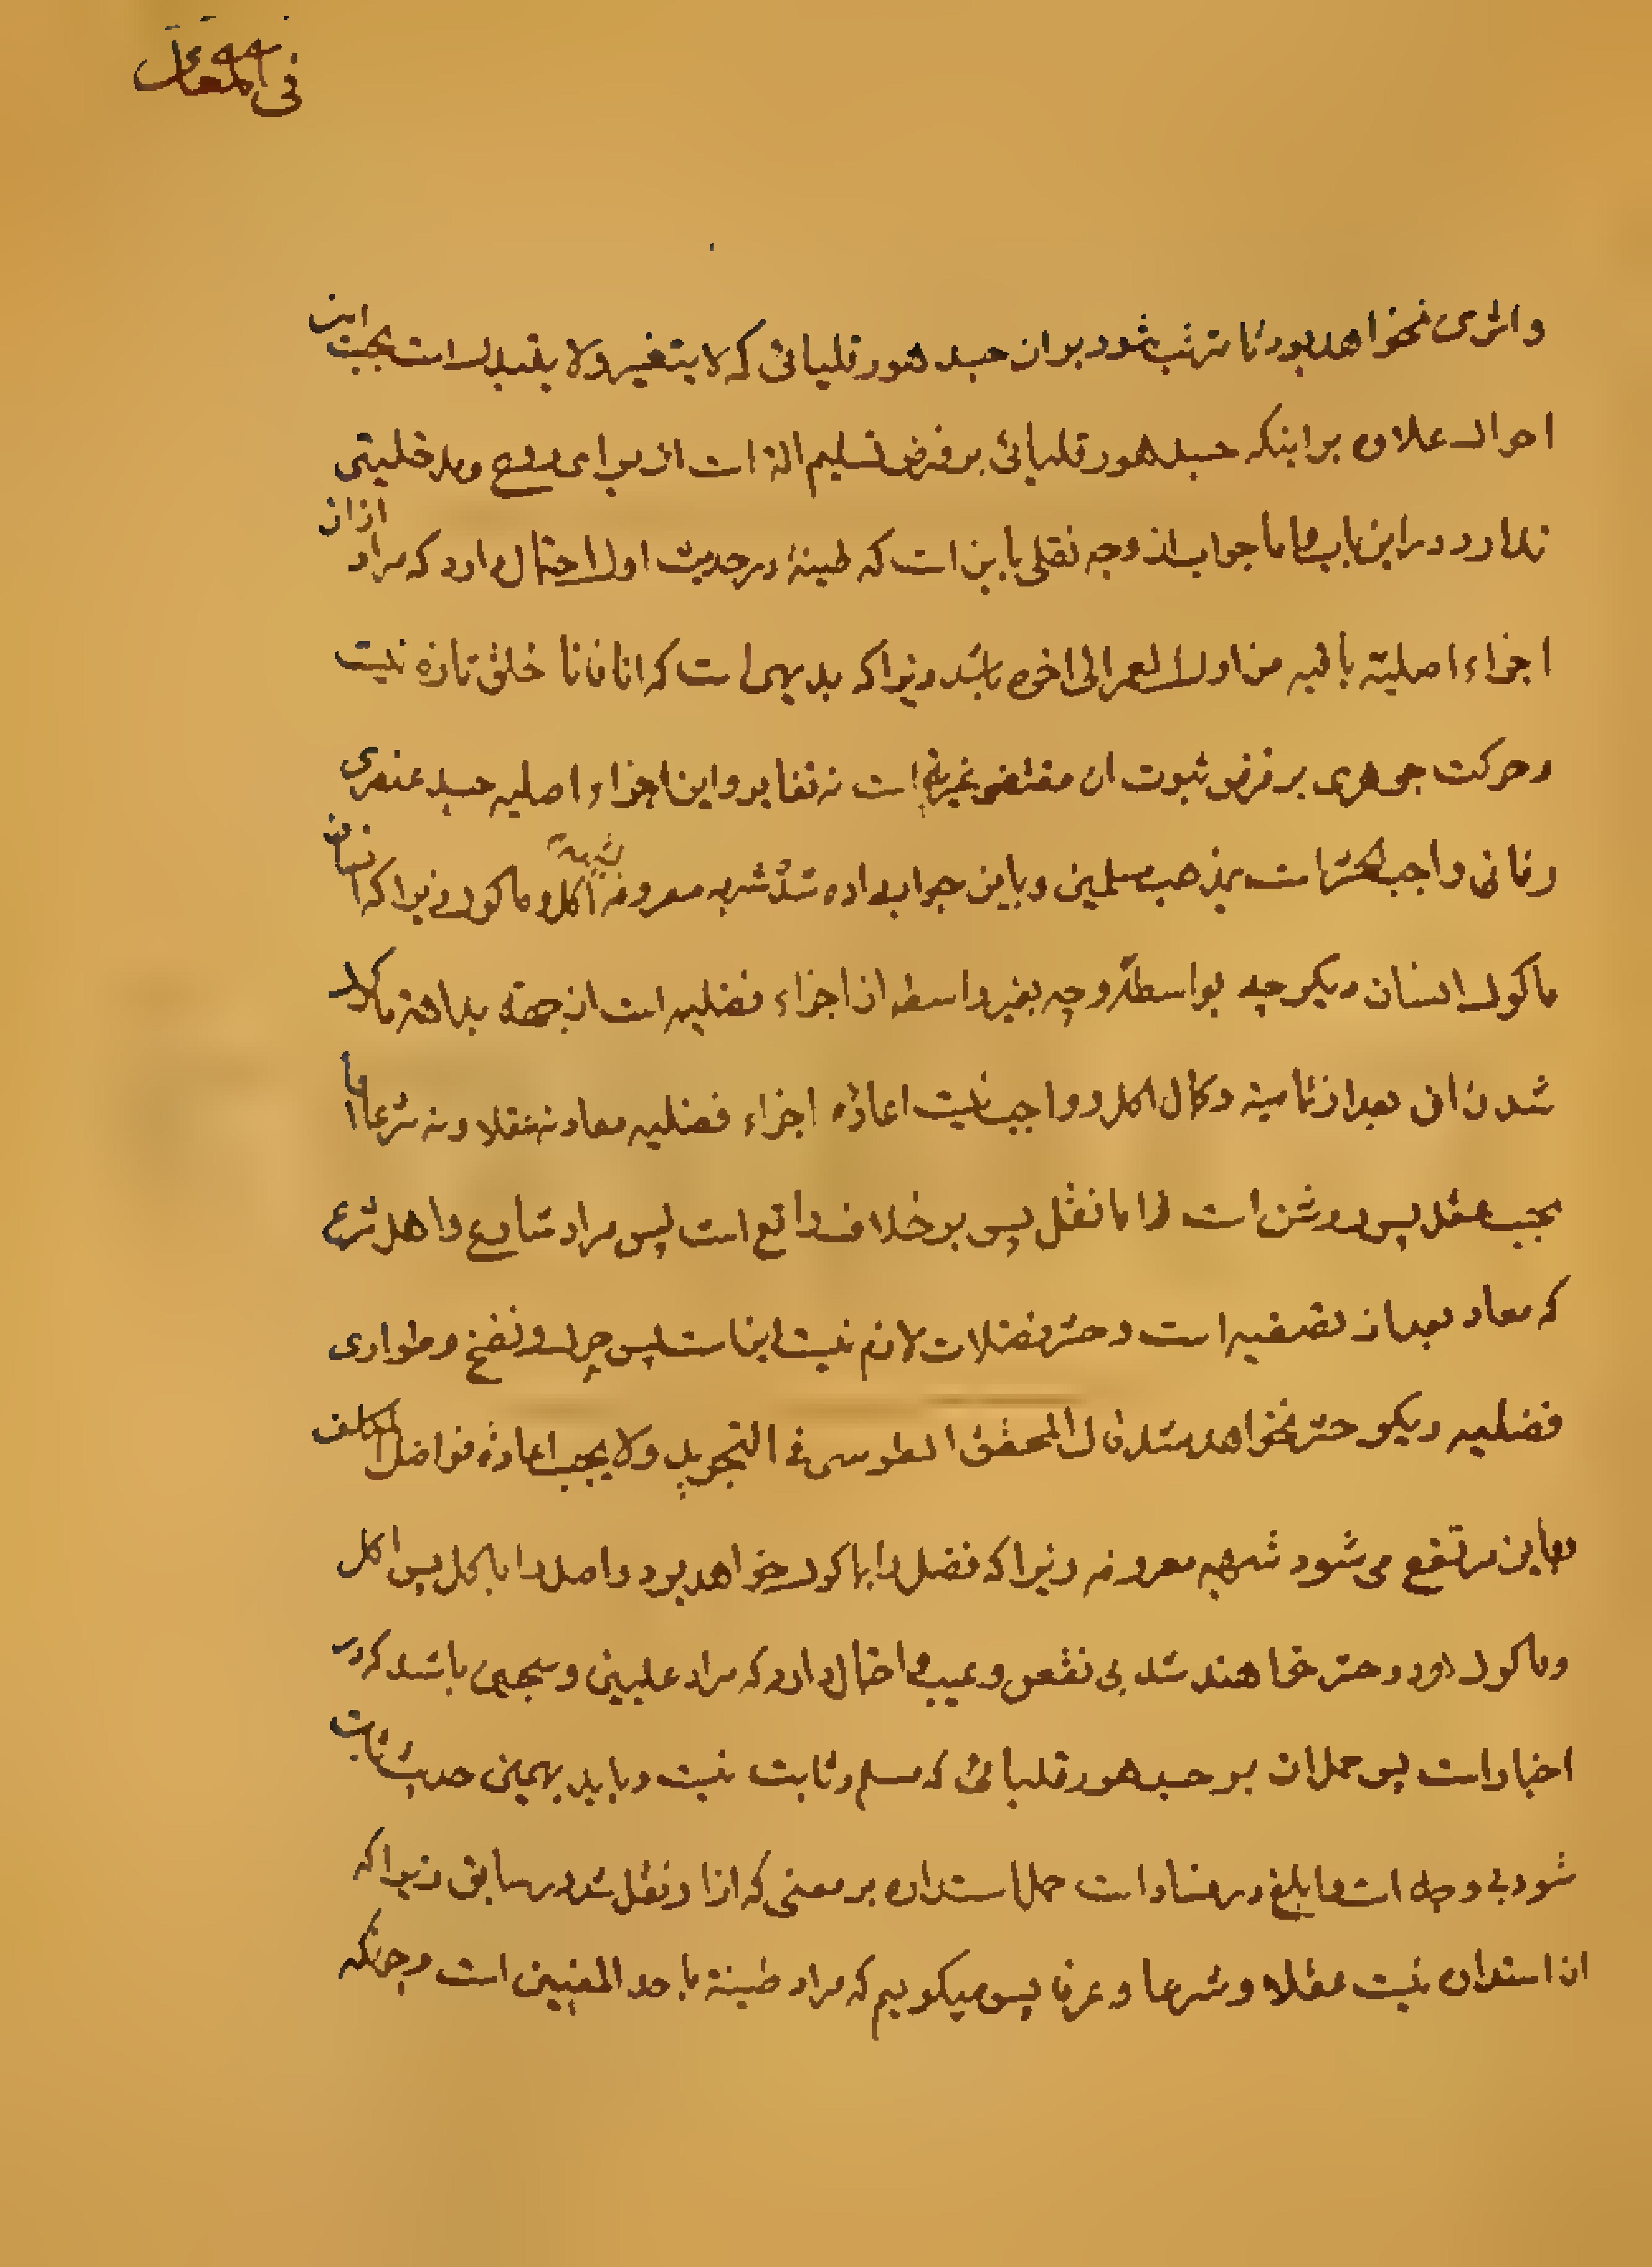 فی المعاد
واثری نخواهد بود تا مترتب شود بران جسد هورقلیائی که لا یتغیر ولا یتبدل است بحیث این
احوال علاوه بر اینکه جسد هورقلیائی بر فرض تسلیم الة است از برای روح و مدخلیتی
ندارد در این باب واما جواب از وجه نقلی باین است که طینة در حدیث اول احتمال دارد که مراد ازان
اجزاء اصلیة باقیه من اول العمر الی اخره باشد زیرا که بدیهی است که انا فانا خلق تازه نیست
وحرکت جوهری بر فرض ثبوت ان مقتضی است نه تغایر واین اجزاء اصلیه جسد عنصری
زمانی واجب الحشر است بمذهب مسلمین وباین جواب داده شد شبهه معروفه اکل وماکول زیرا که انسان
ماکول انسان دیگر چه بواسطه وچه بغیر واسطه از اجزاء فضلیه است از جهة بداهة ماکول
شدن ان بعد از تامیة وکمال اکل وواجب نیست اعادة اجزاء فضلیه معاد نه عقلا ونه شرعا اما
بحسب عقل پس روشن است واما نقل پس بر خلاف واقع است پس مراد شارع واهل شرع
که معاد بعد از تصفیه است وحشر فضلات لازم نیست این است پس چرک ونفخ وطواری
فضلیه دیگر حشر نخواهد شد قال المحقق الطوسی فی التجرید ولا یجب اعادة فواضل المکلف
وباین مرتفع می شود شبهه معروفه زیرا که فضل را ماکول خواهد بود واصل را با کل پس اکل
وماکول هردو حشر خواهند شد بی نقص وعیب واحتمال دارد که مراد علیین وسجین باشد که در
اخبار است پس حمل ان بر جسد هورقلیائی که مسلم وثابت نیست وباید بهمین حدیث ثابت
شود بی وجه است وابلغ در فساد است حمل استداره بر معنی که از او نقل شد در سابق زیرا که
ان استداره نیست عقلا وشرعا وعرفا پس میگوییم که مراد طینة باحد المعنیین است وچنانکه